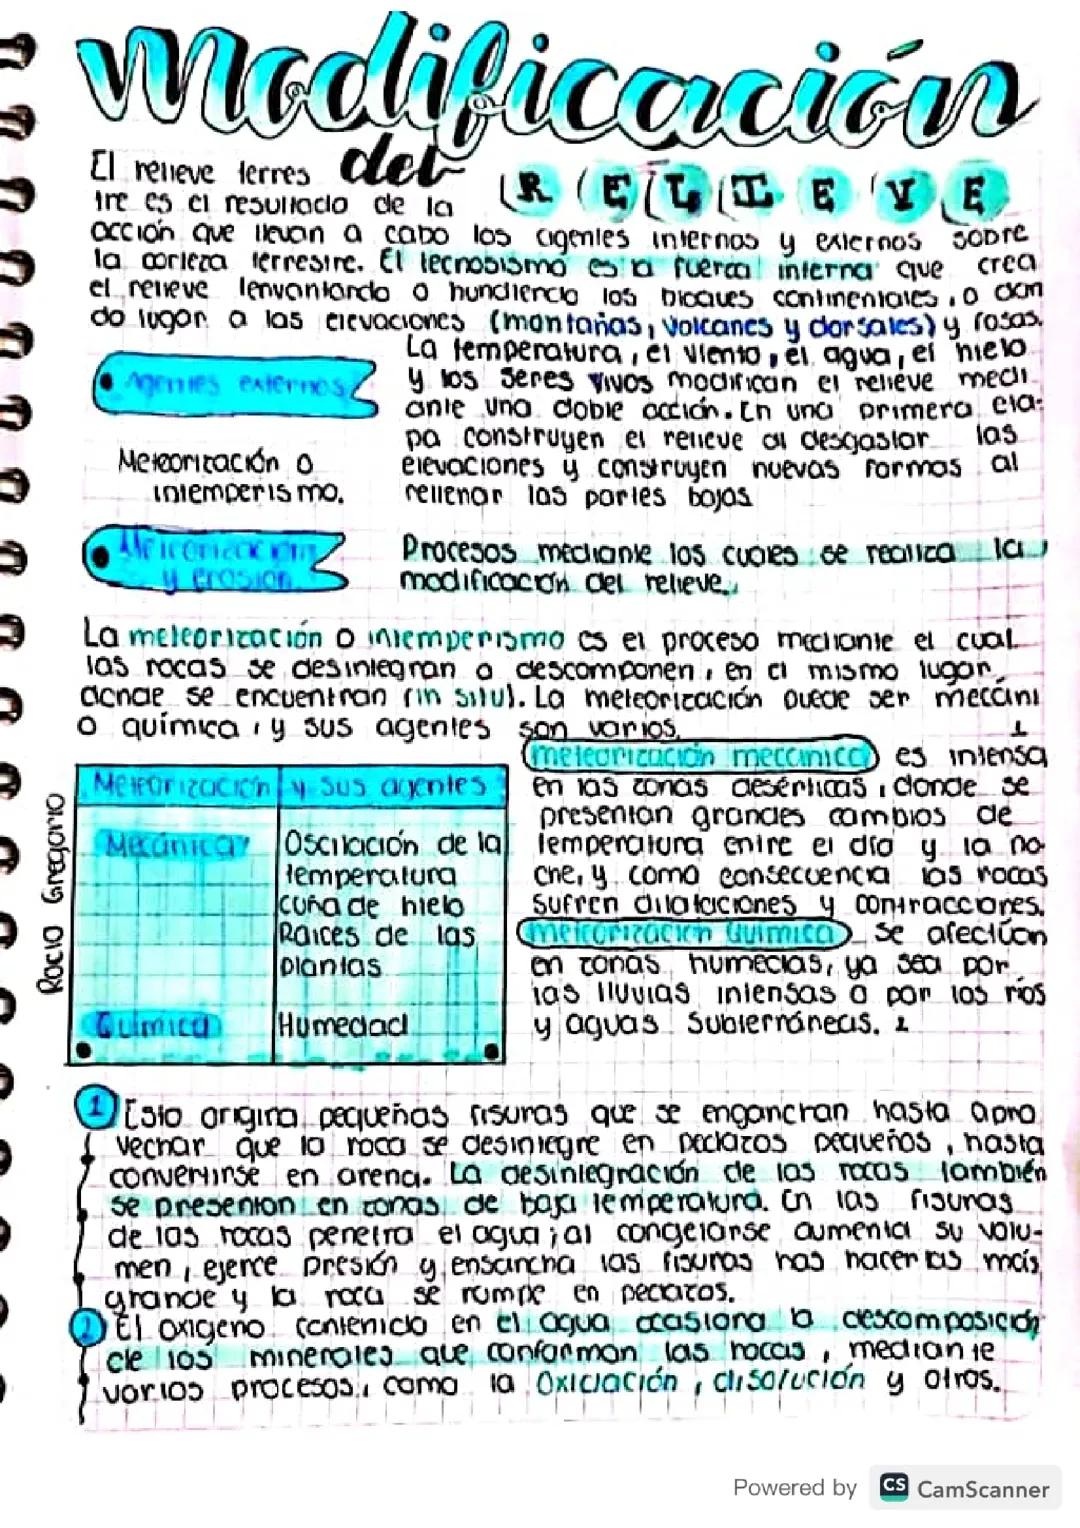 Modificación
del RELIEVE
El relieve terres
tre es el resultado de la
acción que llevan a cabo los agentes internos y externos sobre
la corteza terrestre. El tecnosismo es la fuerza interna que crea
el relieve lenvantando o hundiendo los bloques continentales, o dan
do lugar a las elevaciones (montañas, volcanes y dorsales) y fosas.
Agentes externos
La temperatura, el viento, el agua, el hielo
y los seres vivos modifican el relieve medi
ante una doble acción. En una primera eta-
pa construyen el relieve al desgastar las
elevaciones y construyen nuevas formas al
rellenar las partes bajas
Meteorización o
intemperismo.
Meteorización
y erosion
Procesos mediante los cuales se realiza la
modificación del relieve.
La meteorización o intemperismo es el proceso mediante el cual
las rocas se desintegran o descomponen, en el mismo lugar
donde se encuentran (in situ). La meteorización puede ser mecáni
o química, y sus agentes son varios.
Meteorización y sus agentes
Mecánica
Oscilación de la
temperatura
cuña de hielo
Raices de las
plantas
Química
Humedad
meteorización meccinica es intensa 1
en las zonas desérticas, donde se
presentan grandes cambios de
temperatura entre el día y la no-
che, y como consecuencia las rocas
sufren dilataciones y contracciones.
meteorización Química se afectúan
en zonas humedas, ya sea por
las lluvias intensas o por los ríos
y aguas subterráneas. 2
Rocio Gregorio
1 Esto origina pequeñas fisuras que se enganchan hasta apro
vechar que la roca se desintegre en pedazos pequeños, hasta
convertirse en arena. La desintegración de las rocas también
se presentan en zonas de baja temperatura. En las fisuras
de las rocas penetra el agua; al congelarse aumenta su volu-
men, ejerce presión y ensancha las fisuras has hacerlas más
grande y la roca se rompe en pedazos.
2 El oxigeno contenido en el agua ocasiona la descomposición
de los minerales que conforman las rocas, mediante
varios procesos, como la oxidación, disolución y otros.
Powered by CS CamScanner